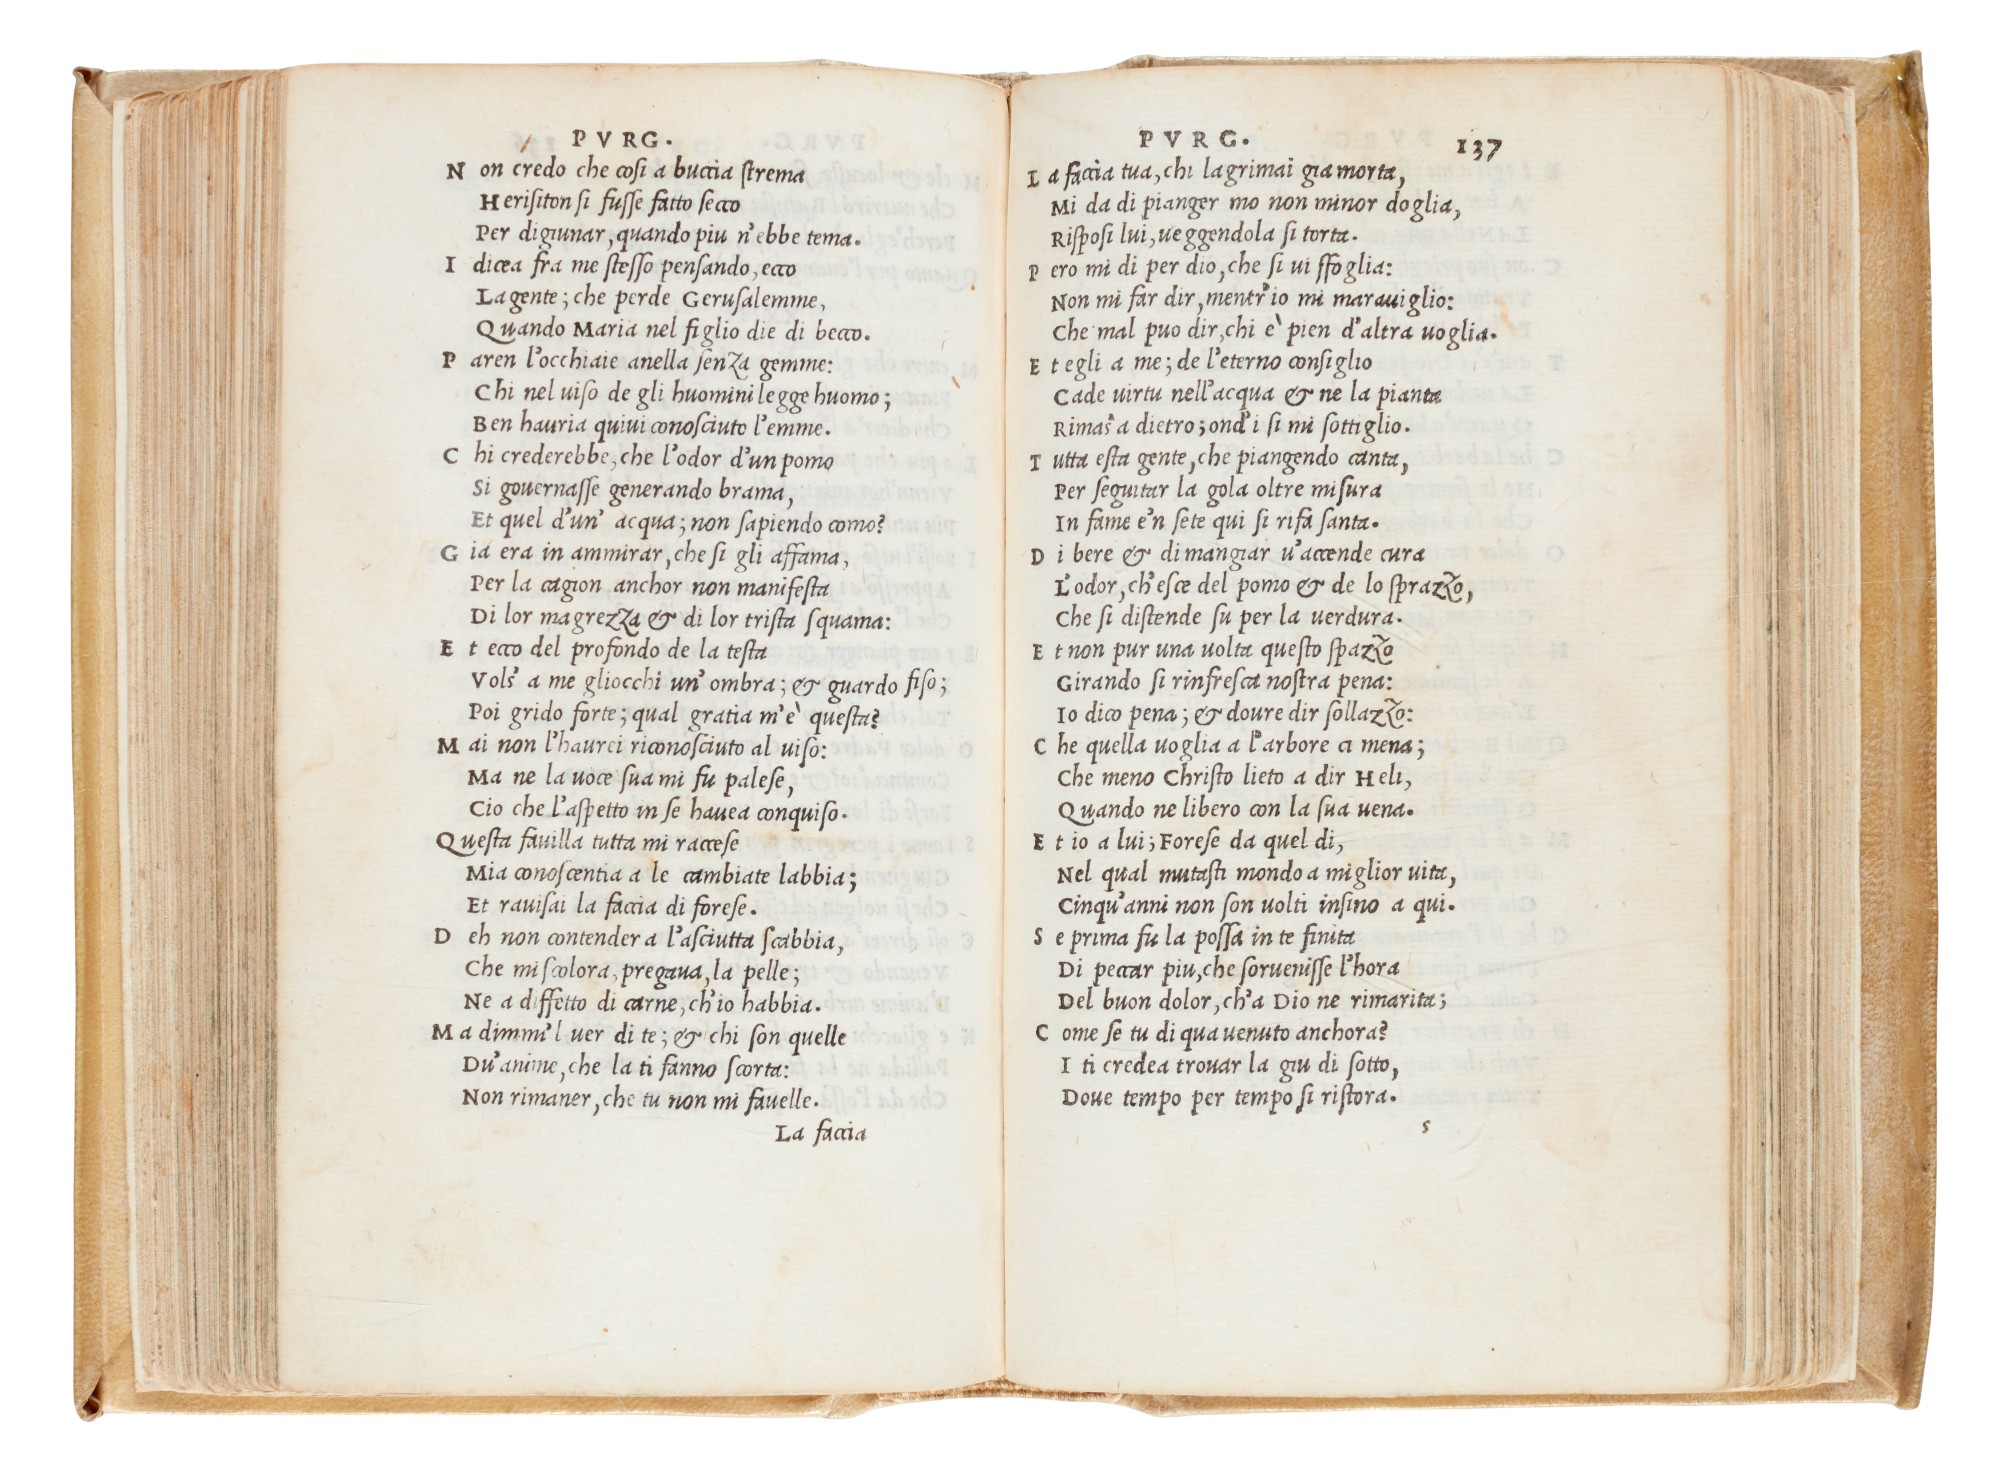 PVRG.
N on credo che cosi a buccia strema
Herisiton si fusse fatto secco
Per digiunar, quando piu n'ebbe tema.
I dicea fra me stesso pensando, ecco
La gente; che perde Gerusalemme,
Quando Maria nel figlio die di becco.
P aren l'occhiaie anella senza gemme:
Chi nel uiso de gli huomini legge huomo;
Ben hauria quiui conosciuto l'emme.
C hi crederebbe, che l'odor d'un pomo
Si gouernasse generando brama,
Et quel d'un' acqua; non sapiendo como?
G ia era in ammirar, che si gli affama,
Per la cagion anchor non manifesta
Di lor magrezza & di lor trista squama:
E t ecco del profondo de la testa
Vols' a me gliocchi un' ombra; & guardo fiso;
Poi grido forte; qual gratia m'è questa?
M ai non l'haurei riconosciuto al uiso:
Ma ne la uoce sua mi fu palese,
Cio che l'aspetto in se hauea conquiso.
Questa fauilla tutta mi raccese
Mia conoscentia a le cambiate labbia;
Et rauisai la faccia di forese.
D eh non contender a l'asciutta scabbia,
Che mi scolora, pregaua, la pelle;
Ne a diffetto di carne, ch'io habbia.
M a dimmi'l uer di te; & chi son quelle
Du'anime, che la ti fanno scorta:
Non rimaner, che tu non mi fauelle.
La faccia
PVRG.
137
L a faccia tua, chi lagrimai gia morta,
Mi da di pianger mo non minor doglia,
Risposi lui, ueggendola si torta.
P ero mi di per dio, che si ui sfoglia:
Non mi far dir, mentr'io mi marauiglio:
Che mal puo dir, chi è pien d'altra uoglia.
E t egli a me; de l'eterno consiglio
Cade uirtu nell'acqua & ne la pianta
Rimas' a dietro; ond'i si mi sottiglio.
T utta esta gente, che piangendo canta,
Per seguitar la gola oltre misura
In fame e'n sete qui si rifa santa.
D i bere & di mangiar u'accende cura
L'odor, ch'esce del pomo & de lo sprazzo,
Che si distende su per la uerdura.
E t non pur una uolta questo spazzo
Girando si rinfresca nostra pena:
Io dico pena; & doure dir sollazzo:
C he quella uoglia a l'arbore ci mena;
Che meno Christo lieto a dir Heli,
Quando ne libero con la sua uena.
E t io a lui; Forese da quel di,
Nel qual mutasti mondo a miglior uita,
Cinqu'anni non son uolti insino a qui.
S e prima fu la possa in te finita
Di peccar piu, che soruenisse l'hora
Del buon dolor, ch'a Dio ne rimarita;
C ome se tu di qua uenuto anchora?
I ti credea trouar la giu di sotto,
Doue tempo per tempo si ristora.
s